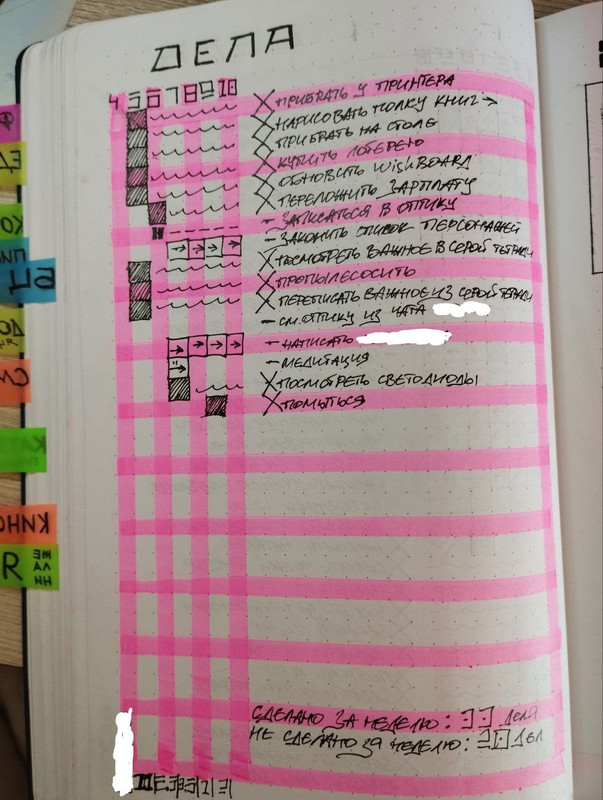 ДЕЛА
4 5 6 7 8 9 10
ПРИБРАТЬ У ПРИНТЕРА
НАРИСОВАТЬ ПОЛКУ КНИГ →
ПРИБРАТЬ НА СТОЛЕ
КУПИТЬ ЛОТЕРЕЮ
ОБНОВИТЬ WISHBOARD
ПЕРЕЛОЖИТЬ ЗАРПЛАТУ
- ЗАПИСАТЬСЯ В ОПТИКУ
- ЗАКОНЧИТЬ СПИСОК ПЕРСОНАЖЕЙ
ПОСМОТРЕТЬ ВАЖНОЕ В СЕРОЙ ТЕТРАДИ
ПРОПЫЛЕСОСИТЬ
ПЕРЕПИСАТЬ ВАЖНОЕ ИЗ СЕРОЙ ТЕТРАДИ
- СМ. ОПТИКУ ИЗ ЧАТА
- НАПИСАТЬ
- МЕДИТАЦИЯ
ПОСМОТРЕТЬ СВЕТОДИОДЫ
ПОМЫТЬСЯ
СДЕЛАНО ЗА НЕДЕЛЮ: ДЕЛА
НЕ СДЕЛАНО ЗА НЕДЕЛЮ: ДЕЛ